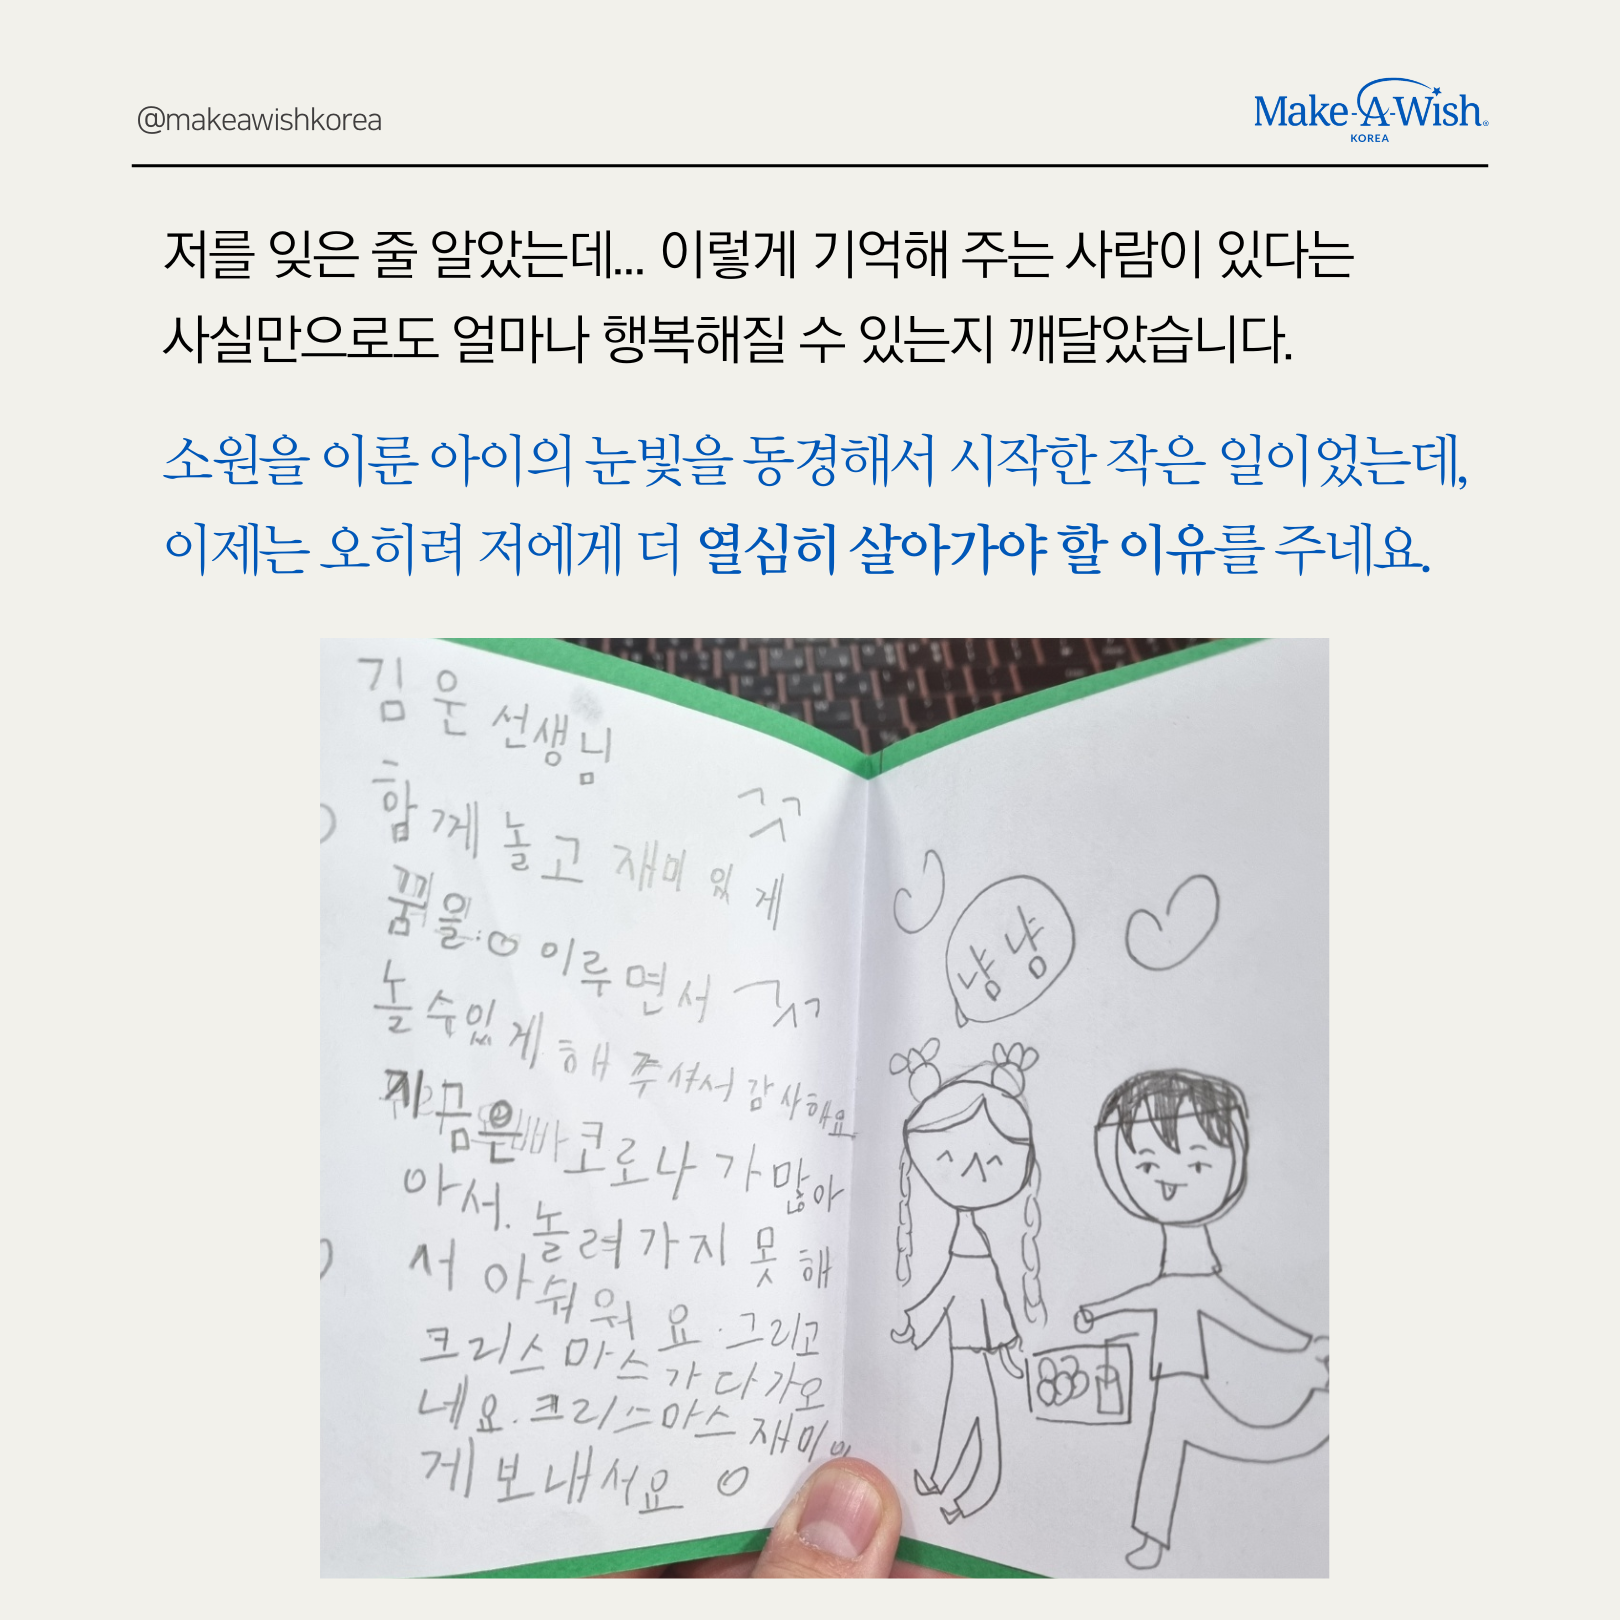 @makeawishkorea
Make-A-Wish®
KOREA
저를 잊은 줄 알았는데... 이렇게 기억해 주는 사람이 있다는
사실만으로도 얼마나 행복해질 수 있는지 깨달았습니다.
소원을 이룬 아이의 눈빛을 동경해서 시작한 작은 일이었는데,
이제는 오히려 저에게 더 열심히 살아가야 할 이유를 주네요.
김윤 선생님
함께 놀고 재미있게
꿈을 이루면서
놀 수 있게 해 주셔서 감사해요
지금은 코로나가 많아
아서. 놀러가지 못해
서 아쉬워요. 그리고
크리스마스가 다가오
네요. 크리스마스 재미
게 보내서요
냠냠